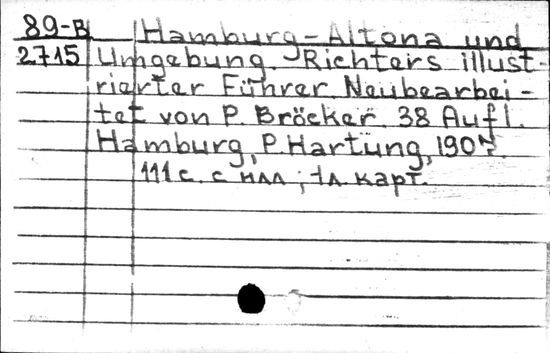 89-В Hamburg-Altona und
2715 Umgebung. Richters illust-
rierter Führer. Neubearbei-
tet von P. Bröcker. 38 Aufl.
Hamburg, P. Hartung, 1907.
111 с. с илл; 1 л. карт.